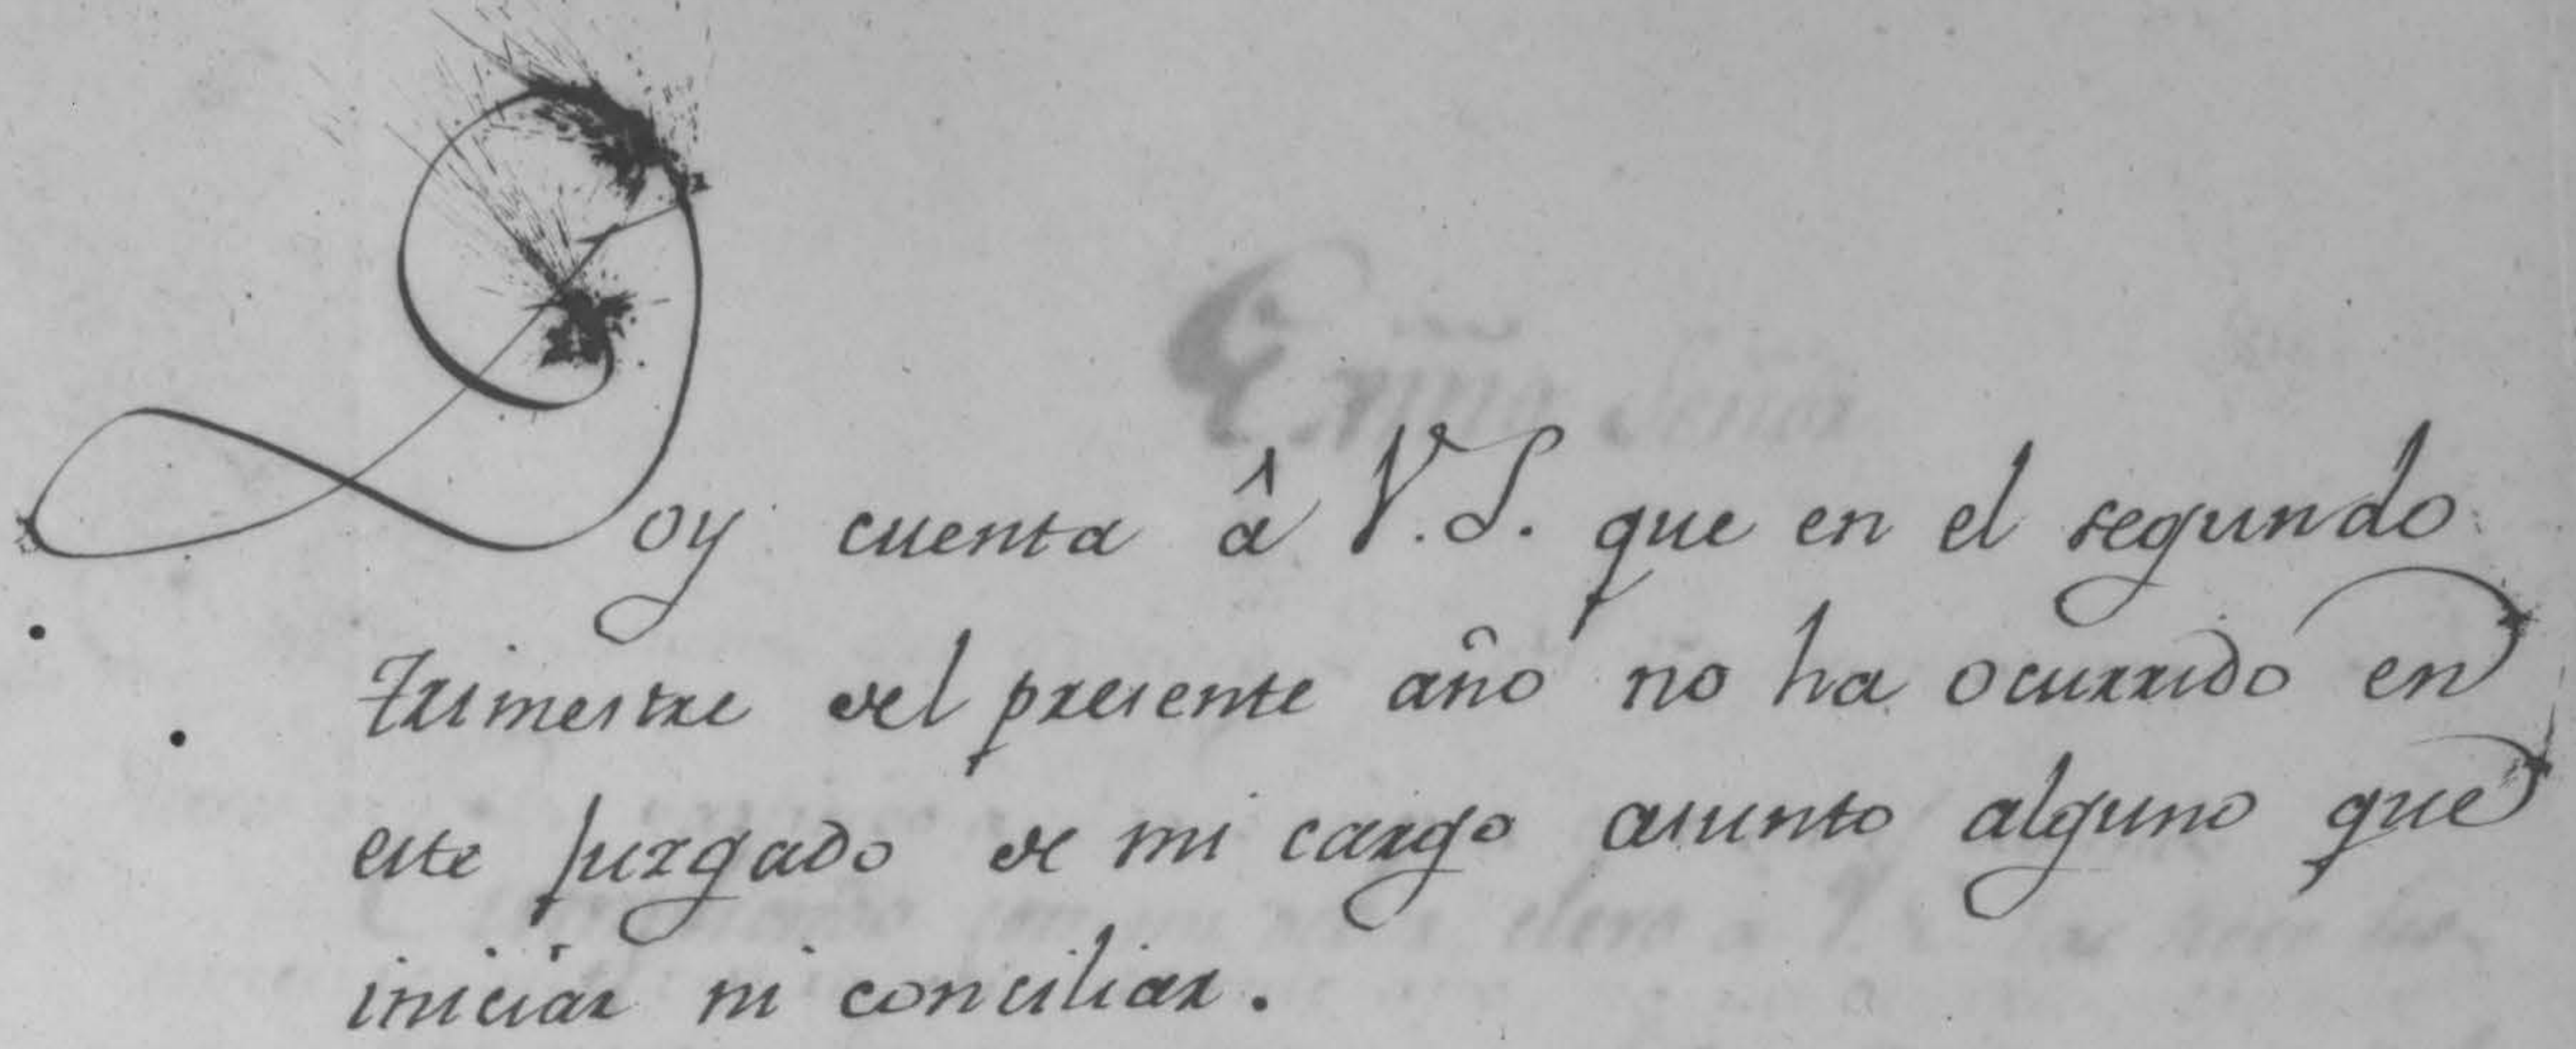 Doy cuenta â V.S. que en el segundo
trimestre del presente año no ha ocurrido en
este juzgado de mi cargo asunto alguno que
iniciar ni conciliar.